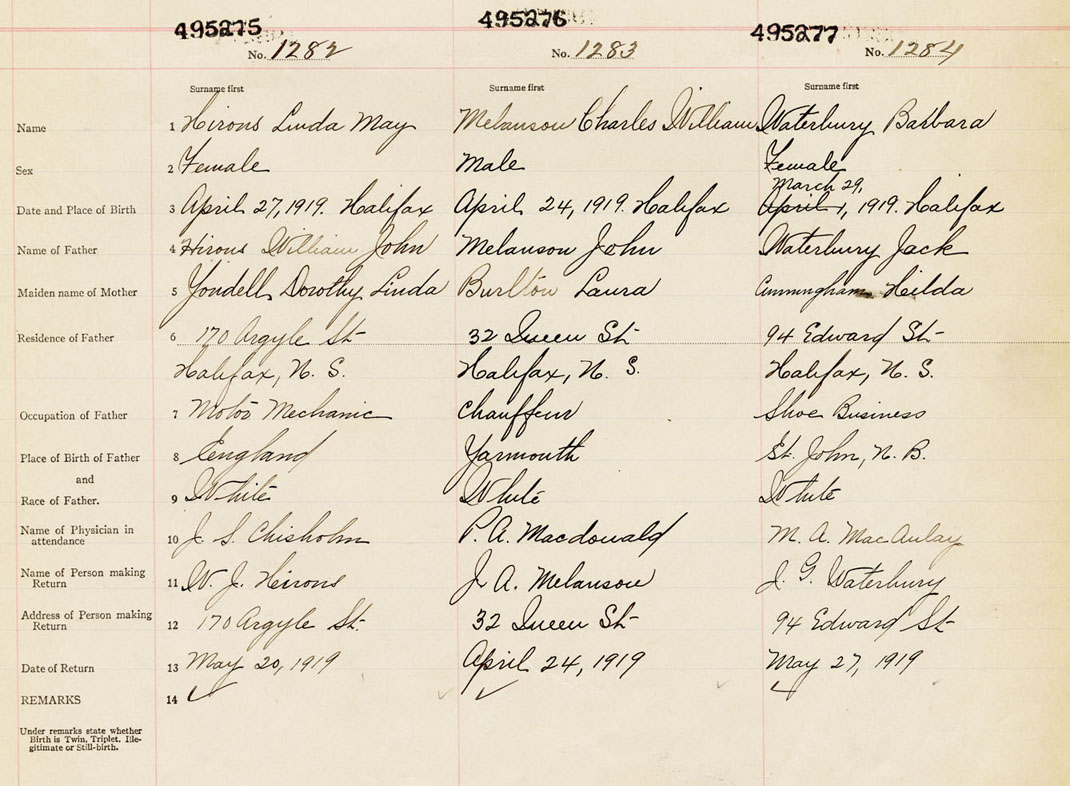 495275 495276 495277
No. 1282 No. 1283 No. 1284
Surname first Surname first Surname first
Name 1 Hirons Linda May Melanson Charles William Waterbury Barbara
Sex 2 Female Male Female
March 29,
Date and Place of Birth 3 April 27, 1919. Halifax April 24, 1919. Halifax April 1, 1919. Halifax
Name of Father 4 Hirons William John Melanson John Waterbury Jack
Maiden name of Mother 5 Yondell Dorothy Linda Burlton Laura Cunningham Hilda
Residence of Father 6 170 Argyle St 32 Queen St 94 Edward St
Halifax, N. S. Halifax, N. S. Halifax, N. S.
Occupation of Father 7 Motor Mechanic Chauffeur Shoe Business
Place of Birth of Father 8 England Yarmouth St. John, N. B.
and
Race of Father. 9 White White White
Name of Physician in
attendance 10 J. S. Chisholm P. A. Macdonald M. A. MacAulay
Name of Person making
Return 11 W. J. Hirons J A. Melanson J. G. Waterbury
Address of Person making
Return 12 170 Argyle St. 32 Queen St 94 Edward St
Date of Return 13 May 20, 1919 April 24, 1919 May 27, 1919
REMARKS 14
Under remarks state whether
Birth is Twin, Triplet, Ille-
gitimate or Still-birth.